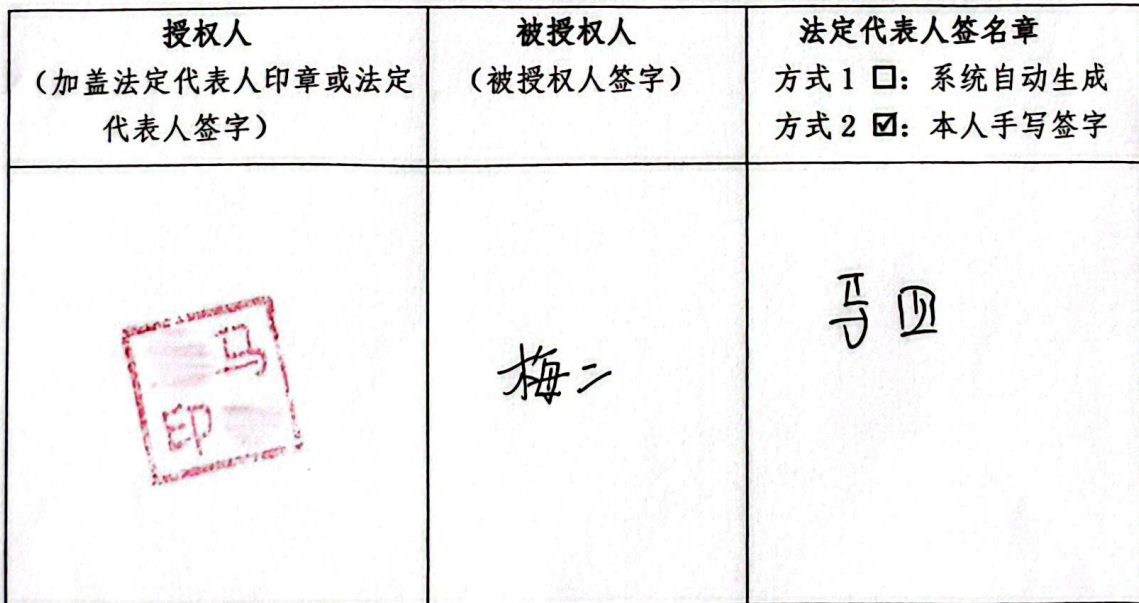 授权人
(加盖法定代表人印章或法定
代表人签字)
被授权人
(被授权人签字)
法定代表人签名章
方式 1 ☐: 系统自动生成
方式 2 ☑: 本人手写签字
马
印
梅二